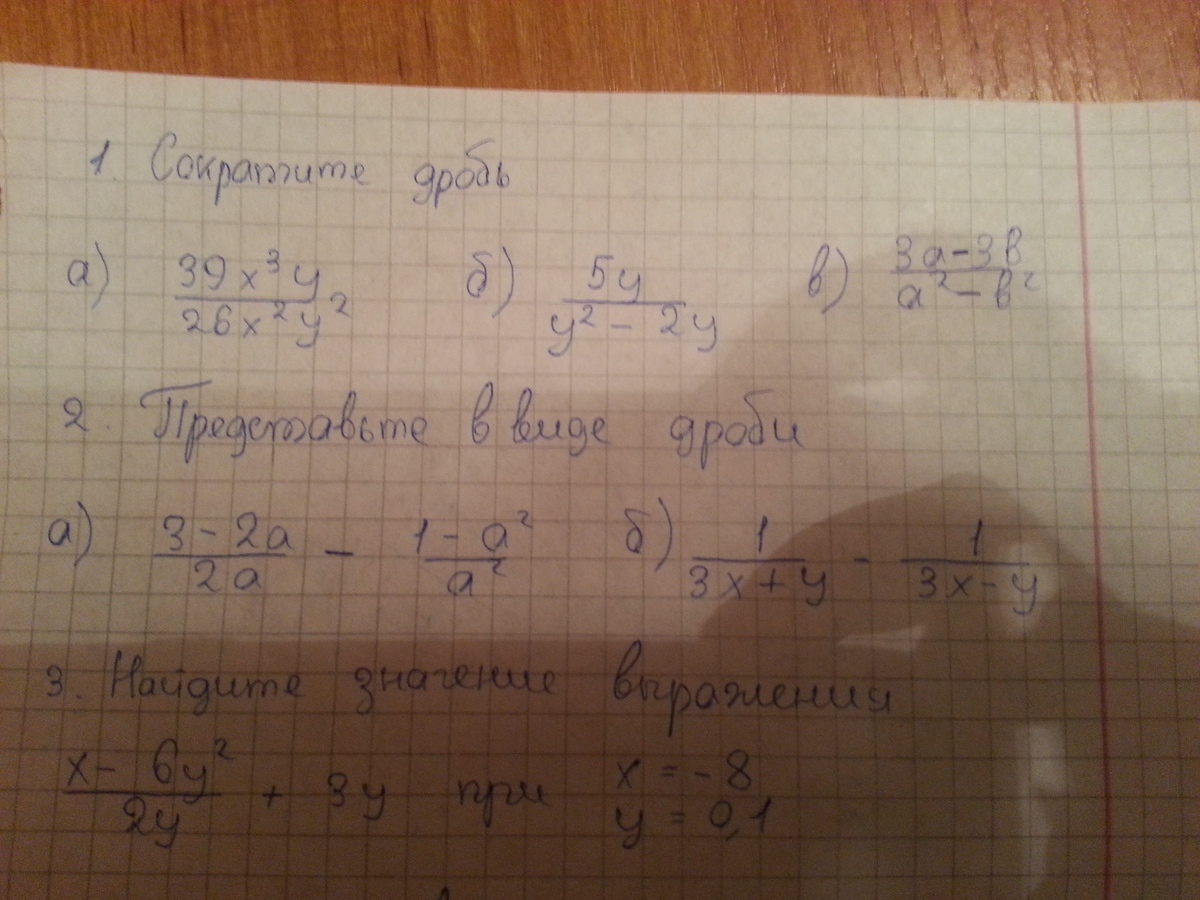 1. Сократите дробь
а) 39x³y / 26x²y² б) 5y / y² - 2y в) 3a-3b / a²-b²
2. Представьте в виде дроби
а) 3-2a / 2a - 1-a² / a² б) 1 / 3x+y - 1 / 3x-y
3. Найдите значение выражения
x- 6y² / 2y + 3y при x = -8
y = 0,1